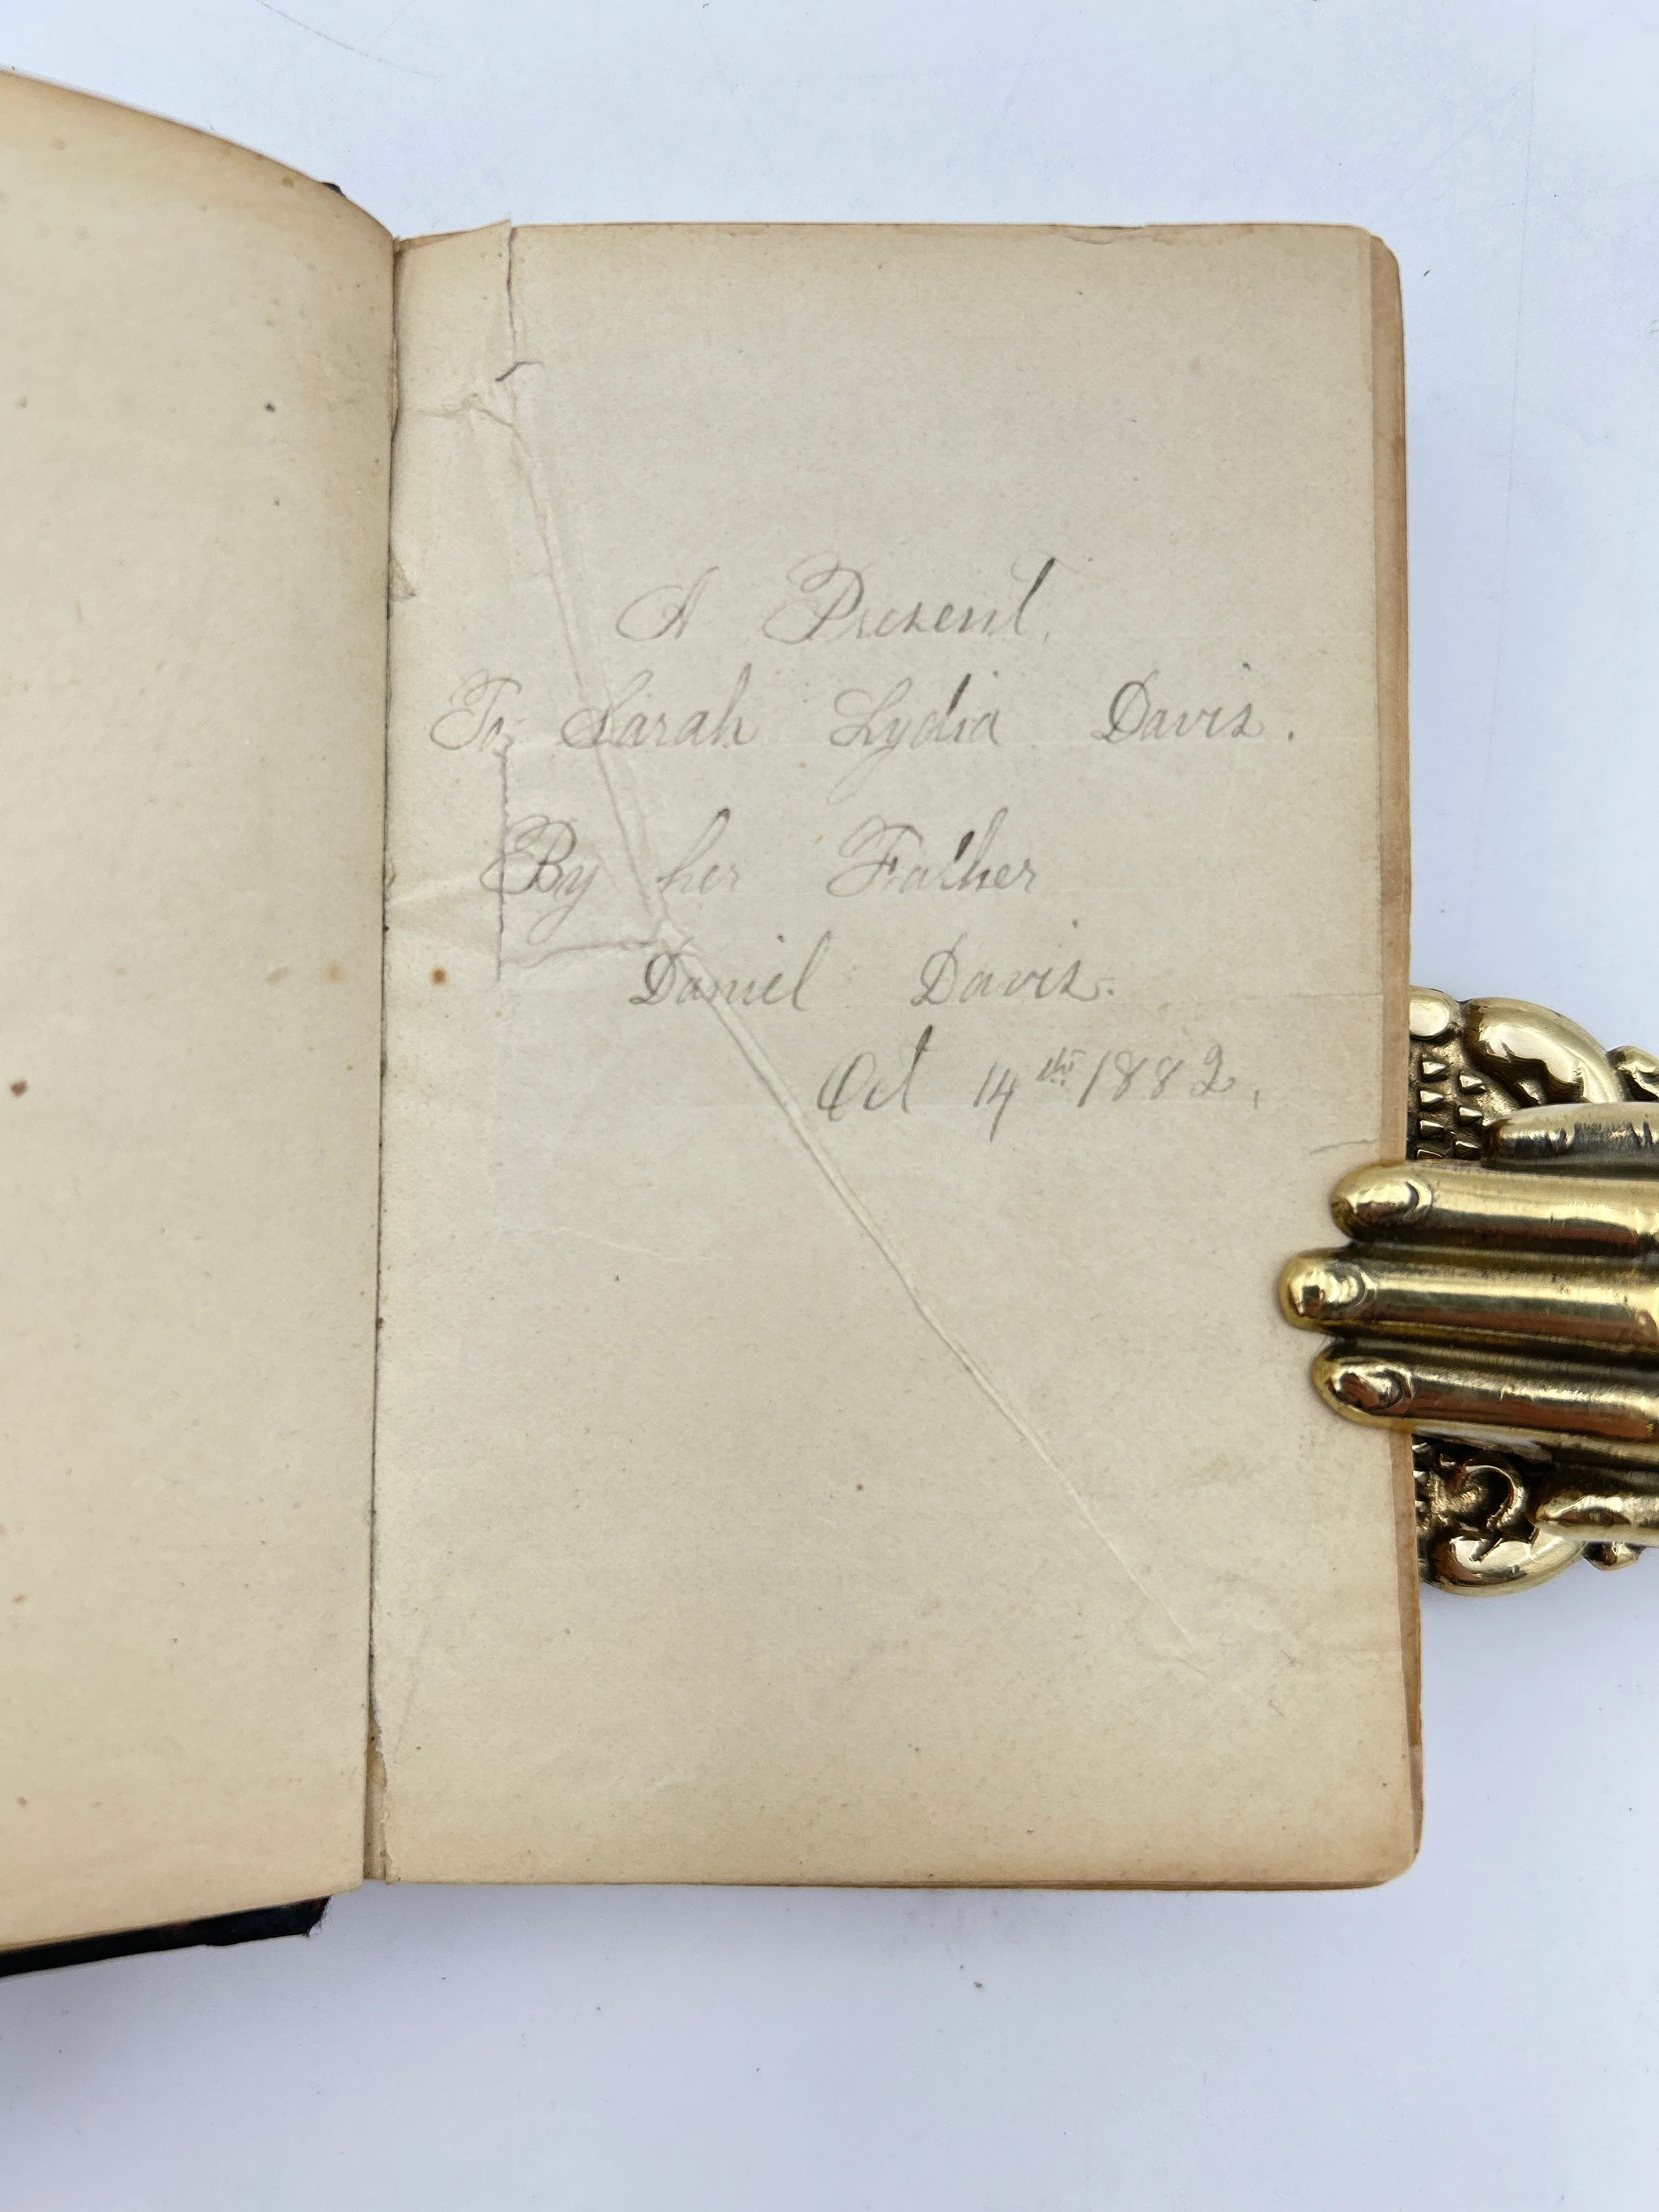 A Present,
To Sarah Lydia Davis.
By her Father
Daniel Davis.
Oct 14th 1882,